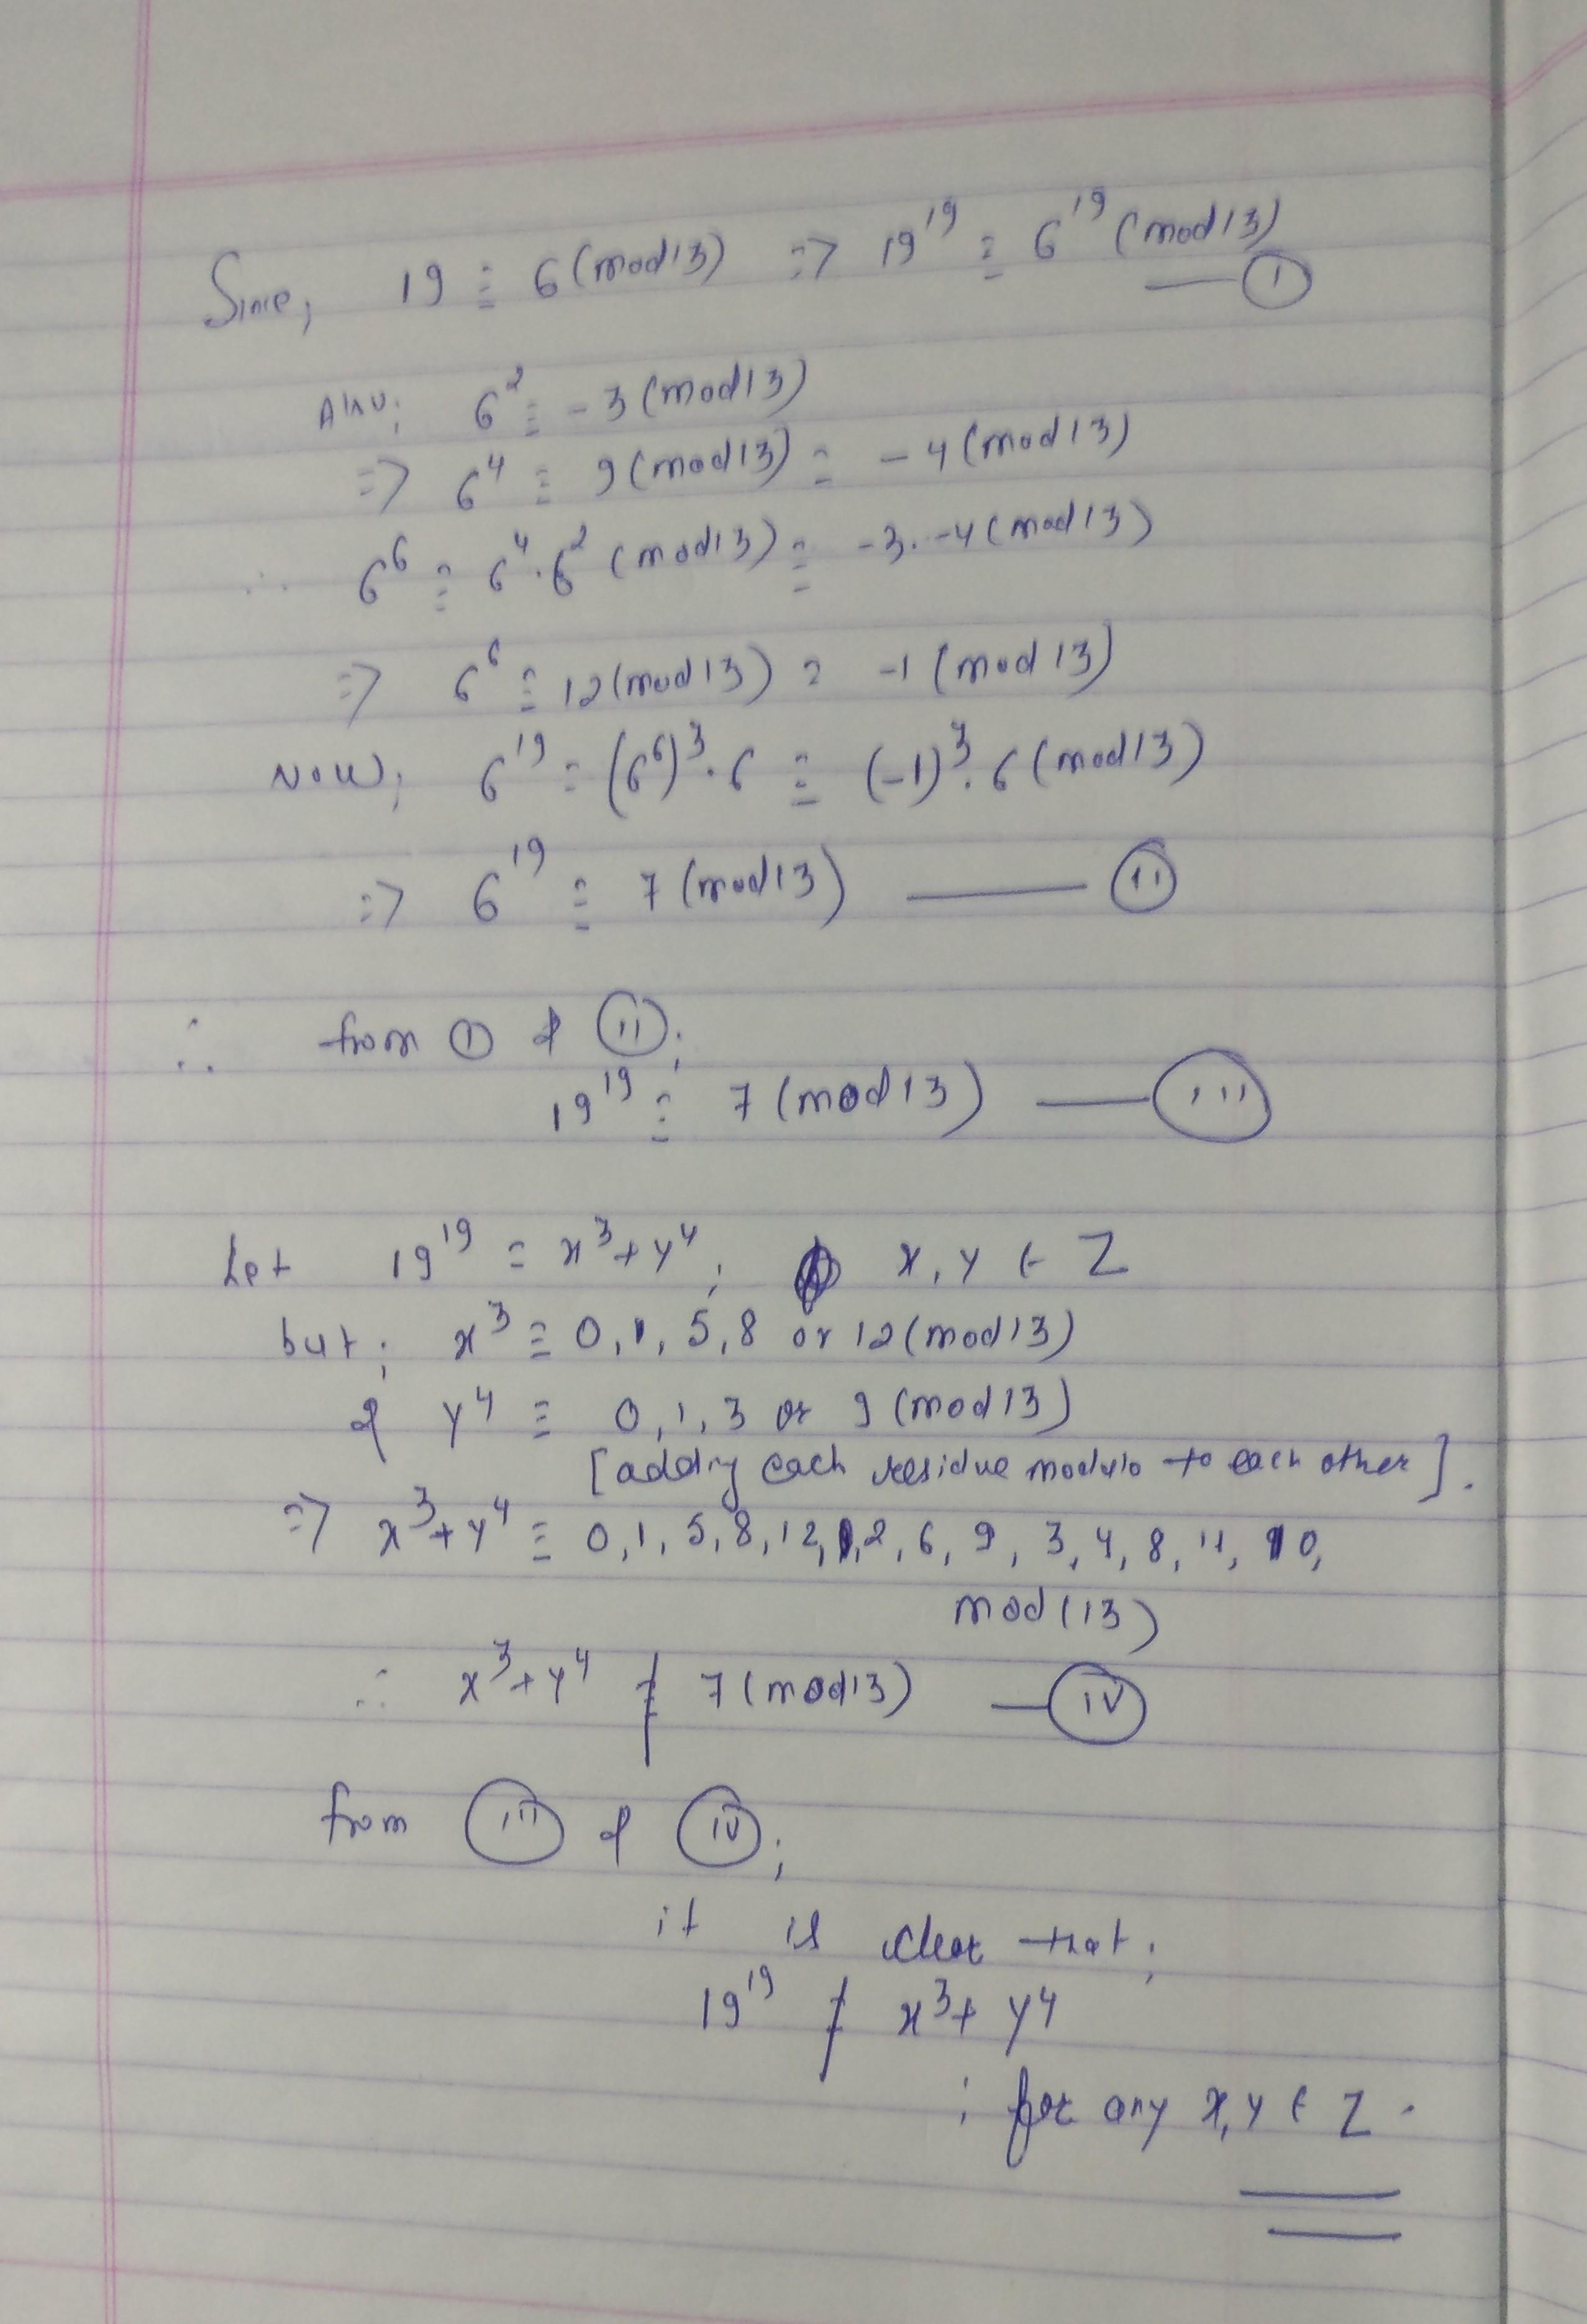 Since, 19 ≡ 6 (mod 13) => 19^19 ≡ 6^19 (mod 13)
— (i)
Also; 6^2 ≡ -3 (mod 13)
=> 6^4 ≡ 9 (mod 13) ≡ -4 (mod 13)
∴ 6^6 ≡ 6^4 . 6^2 (mod 13) ≡ -3 . -4 (mod 13)
=> 6^6 ≡ 12 (mod 13) ≡ -1 (mod 13)
Now; 6^19 = (6^6)^3 . 6 ≡ (-1)^3 . 6 (mod 13)
=> 6^19 ≡ 7 (mod 13) — (ii)
∴ from (i) & (ii);
19^19 ≡ 7 (mod 13) — (iii)
Let 19^19 = x^3 + y^4 ; x, y ∈ Z
but; x^3 ≡ 0, 1, 5, 8 or 12 (mod 13)
& y^4 ≡ 0, 1, 3 or 9 (mod 13)
[adding each residue modulo to each other].
=> x^3 + y^4 ≡ 0, 1, 5, 8, 12, 1, 2, 6, 9, 3, 4, 8, 11, 10,
mod (13)
∴ x^3 + y^4 ≢ 7 (mod 13) — (iv)
from (iii) & (iv);
it is clear that;
19^19 ≠ x^3 + y^4
; for any x, y ∈ Z.